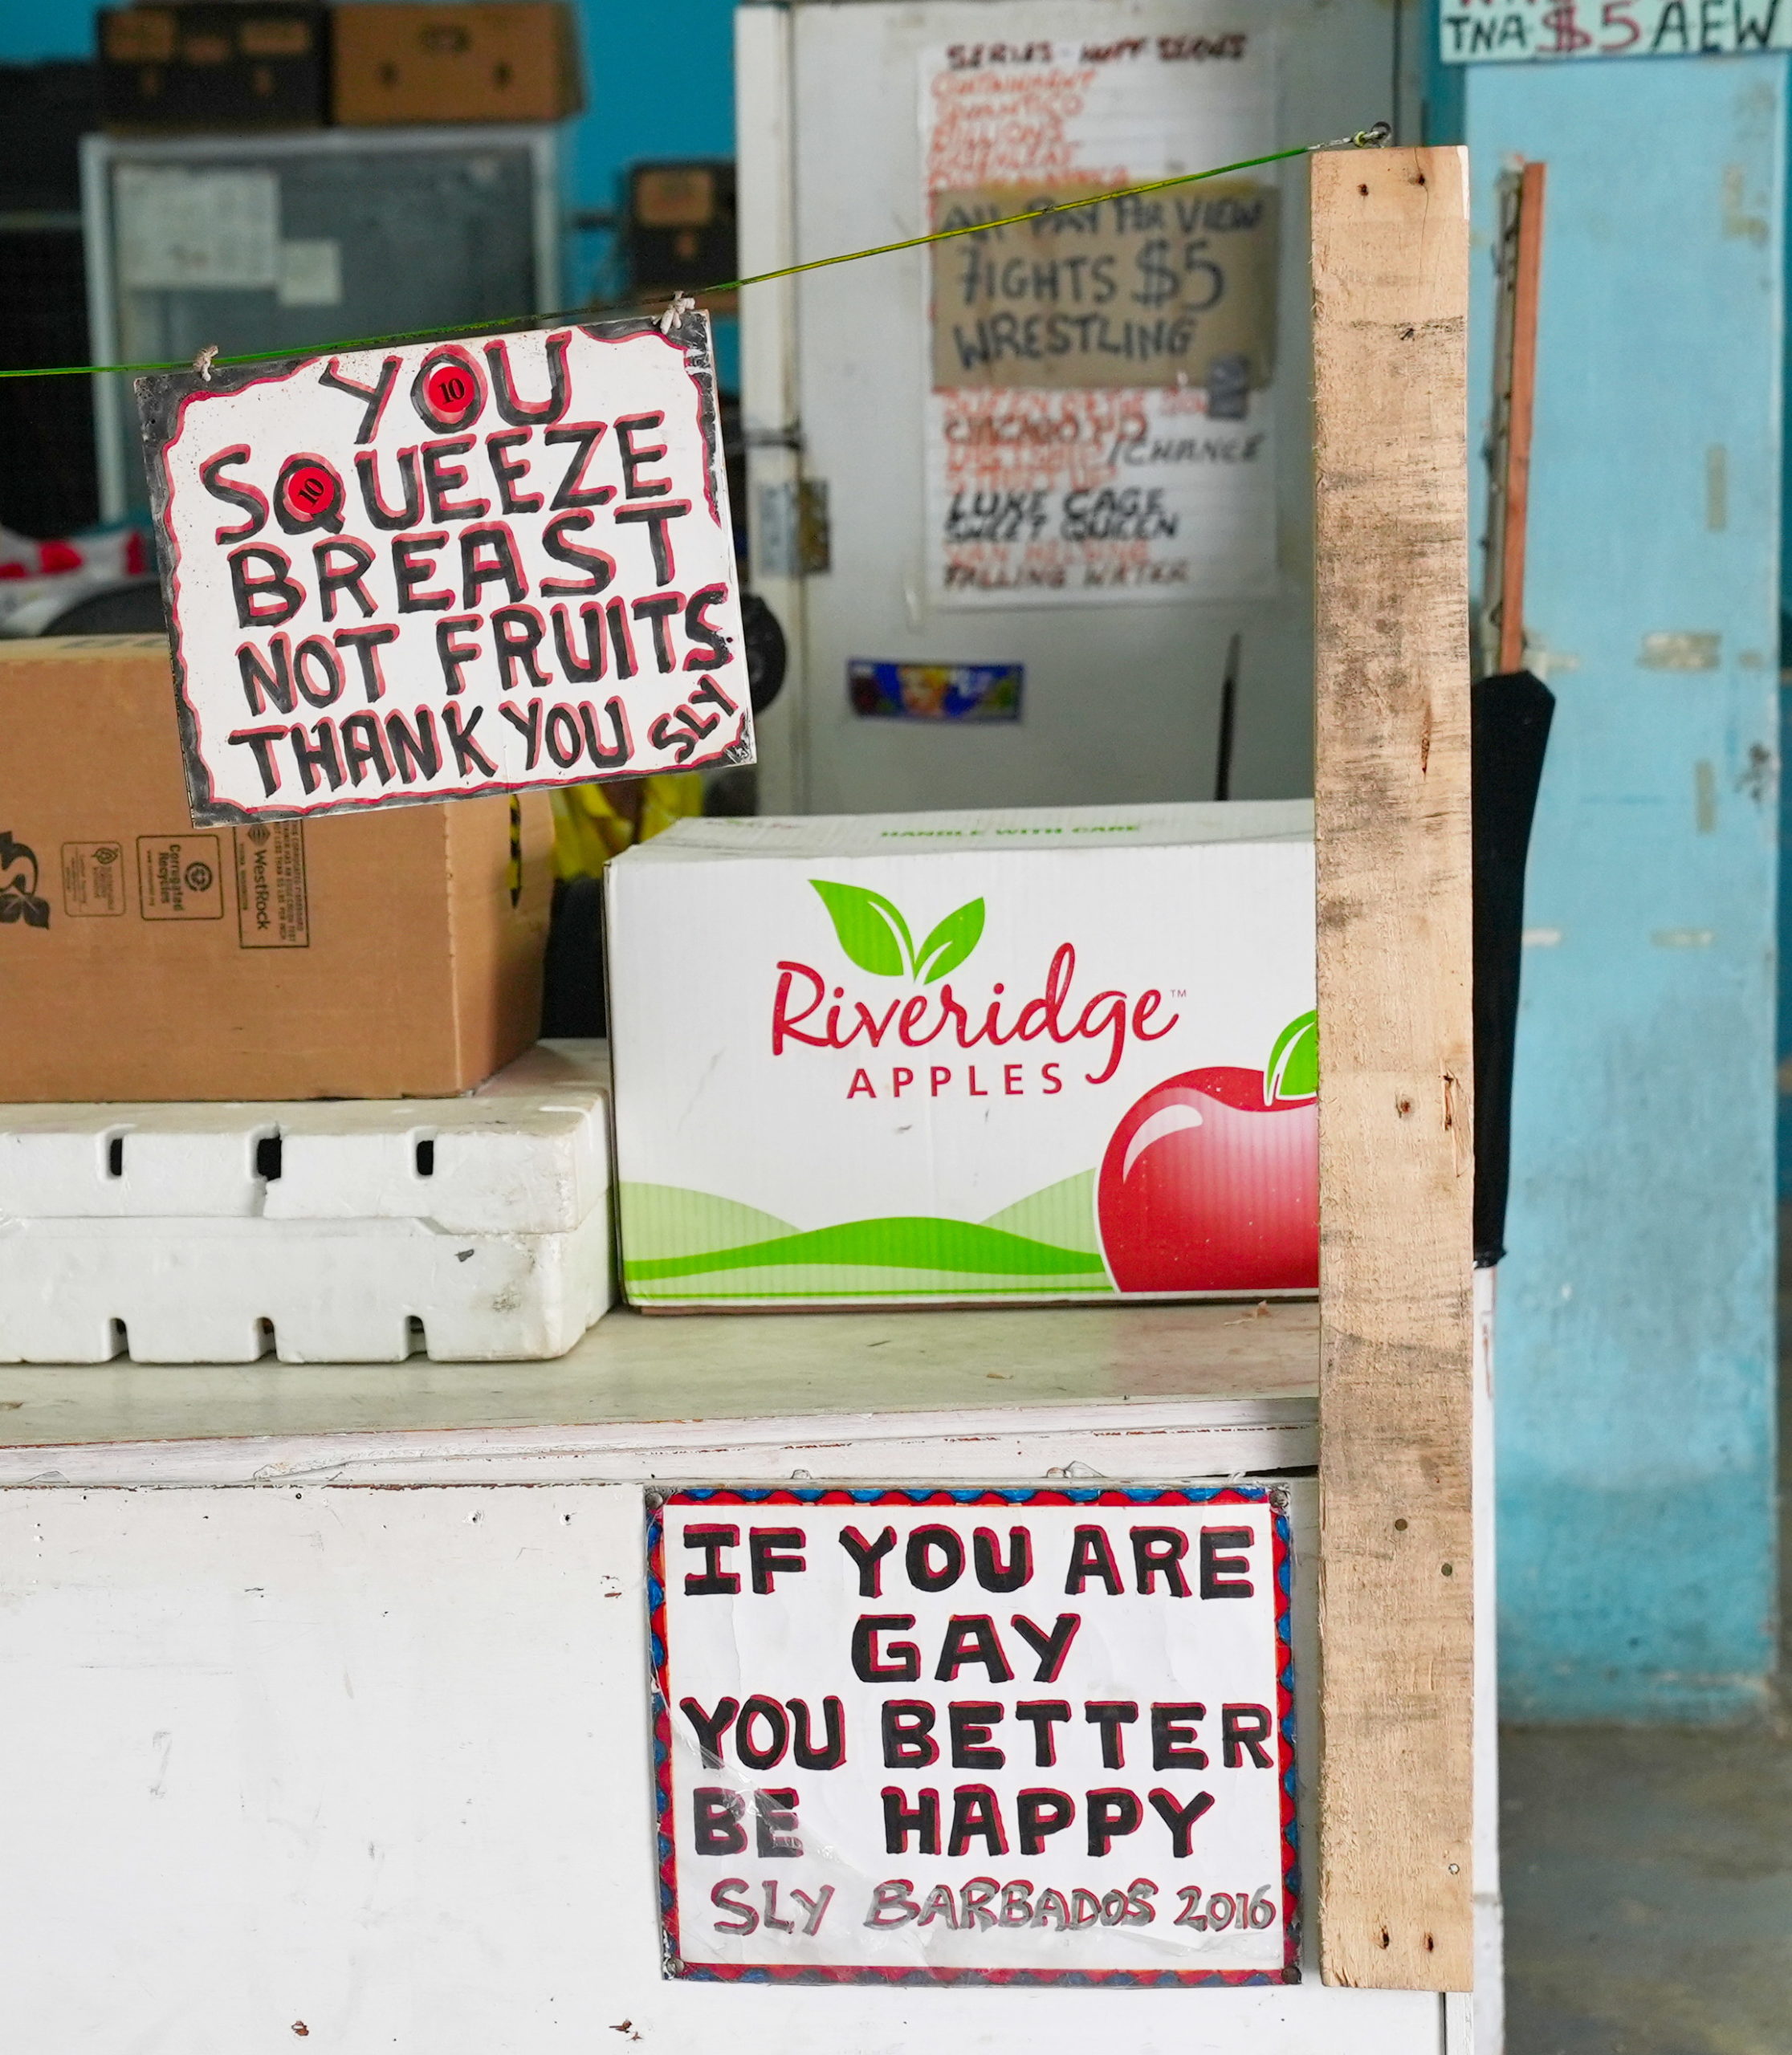 TNA $5 AEW
CONTAINMENT
QUANTICO
BILLIONS
ALL PAY PER VIEW
FIGHTS $5
WRESTLING
CHICAGO P.D
/CHANCE
LUKE CAGE
SWEET QUEEN
VAN HELSING
FALLING WATER
YOU
10
SQUEEZE
10
BREAST
NOT FRUITS
THANK YOU SLY
Corrugated
Recycles
WestRock
HANDLE WITH CARE
Riveridge™
APPLES
IF YOU ARE
GAY
YOU BETTER
BE HAPPY
SLY BARBADOS 2016